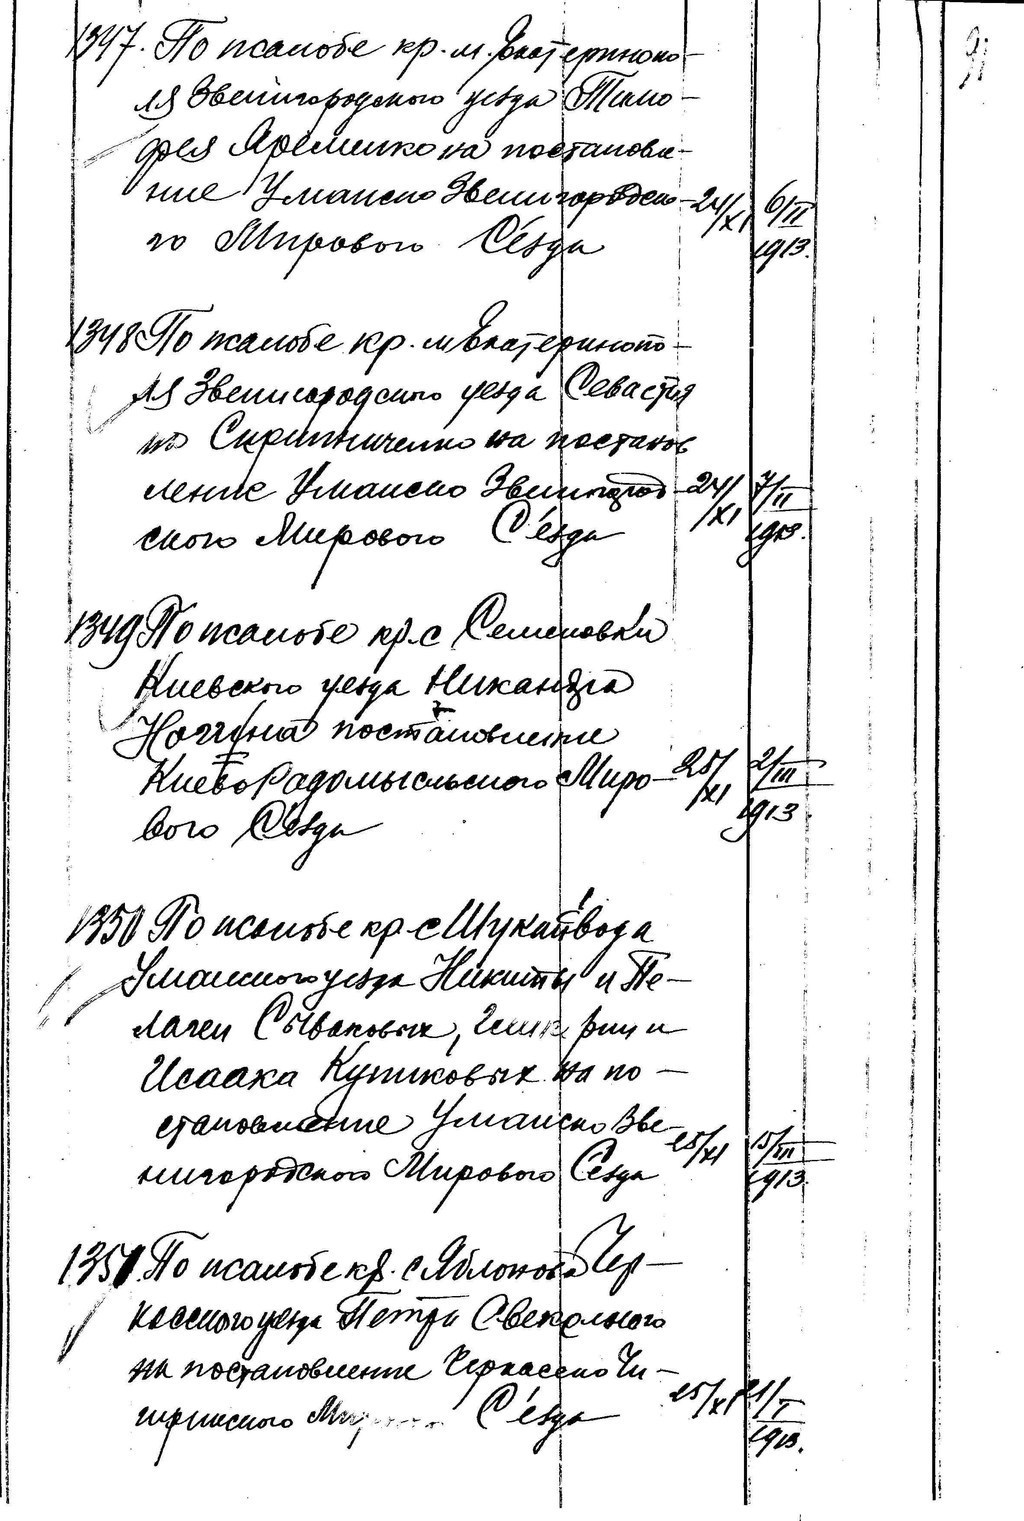 1347. По жалобе кр. м. Екатеринопо-
ля Звенигородского уезда Тимо-
фея Яременко на постановле-
ние Уманско Звенигородско- 24/XI 6/II
го Мирового Съезда 1913.
1348 По жалобе кр. м Екатеринопо-
ля Звенигородского уезда Севастья
на Скрипниченко на постанов
ление Уманско Звенигород- 24/XI 7/II
ского Мирового Съезда 1913.
1349 По жалобе кр. с Семеновки
Киевского уезда Никандра
постановление
Киево Радомысльского Миро- 25/XI 2/III
вого Съезда 1913
1350 По жалобе кр. с Шукайвода
Уманского уезда Никиты и Пе-
лагеи Сываковых, и
Исаака Куликовых на по-
становление Уманско Зве- 25/XI 15/III
нигородского Мирового Съезда 1913.
1351. По жалобе кр. с Яблонова Чер-
касского уезда Петра Свекольного
на постановление Черкасско Чи-
гиринского Съезда 25/XI 21/I
1913.